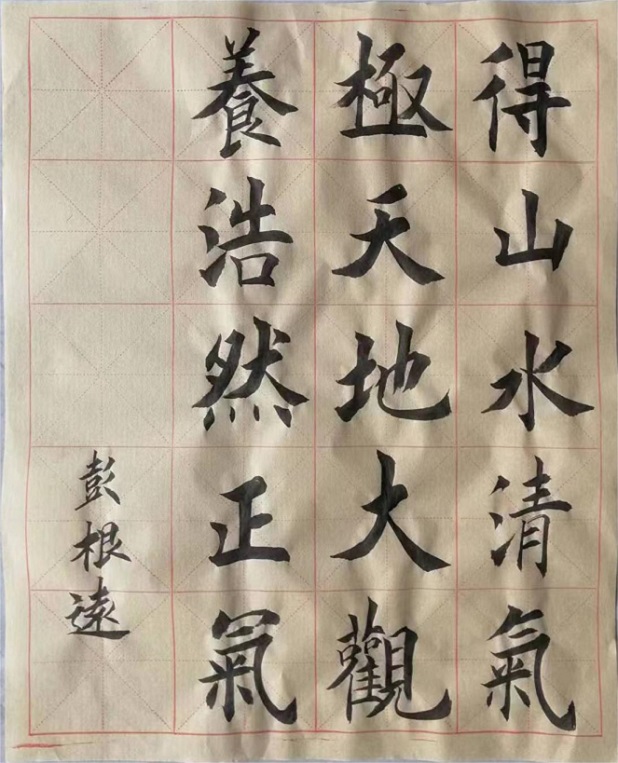 得山水清氣
極天地大觀
養浩然正氣
彭根遠